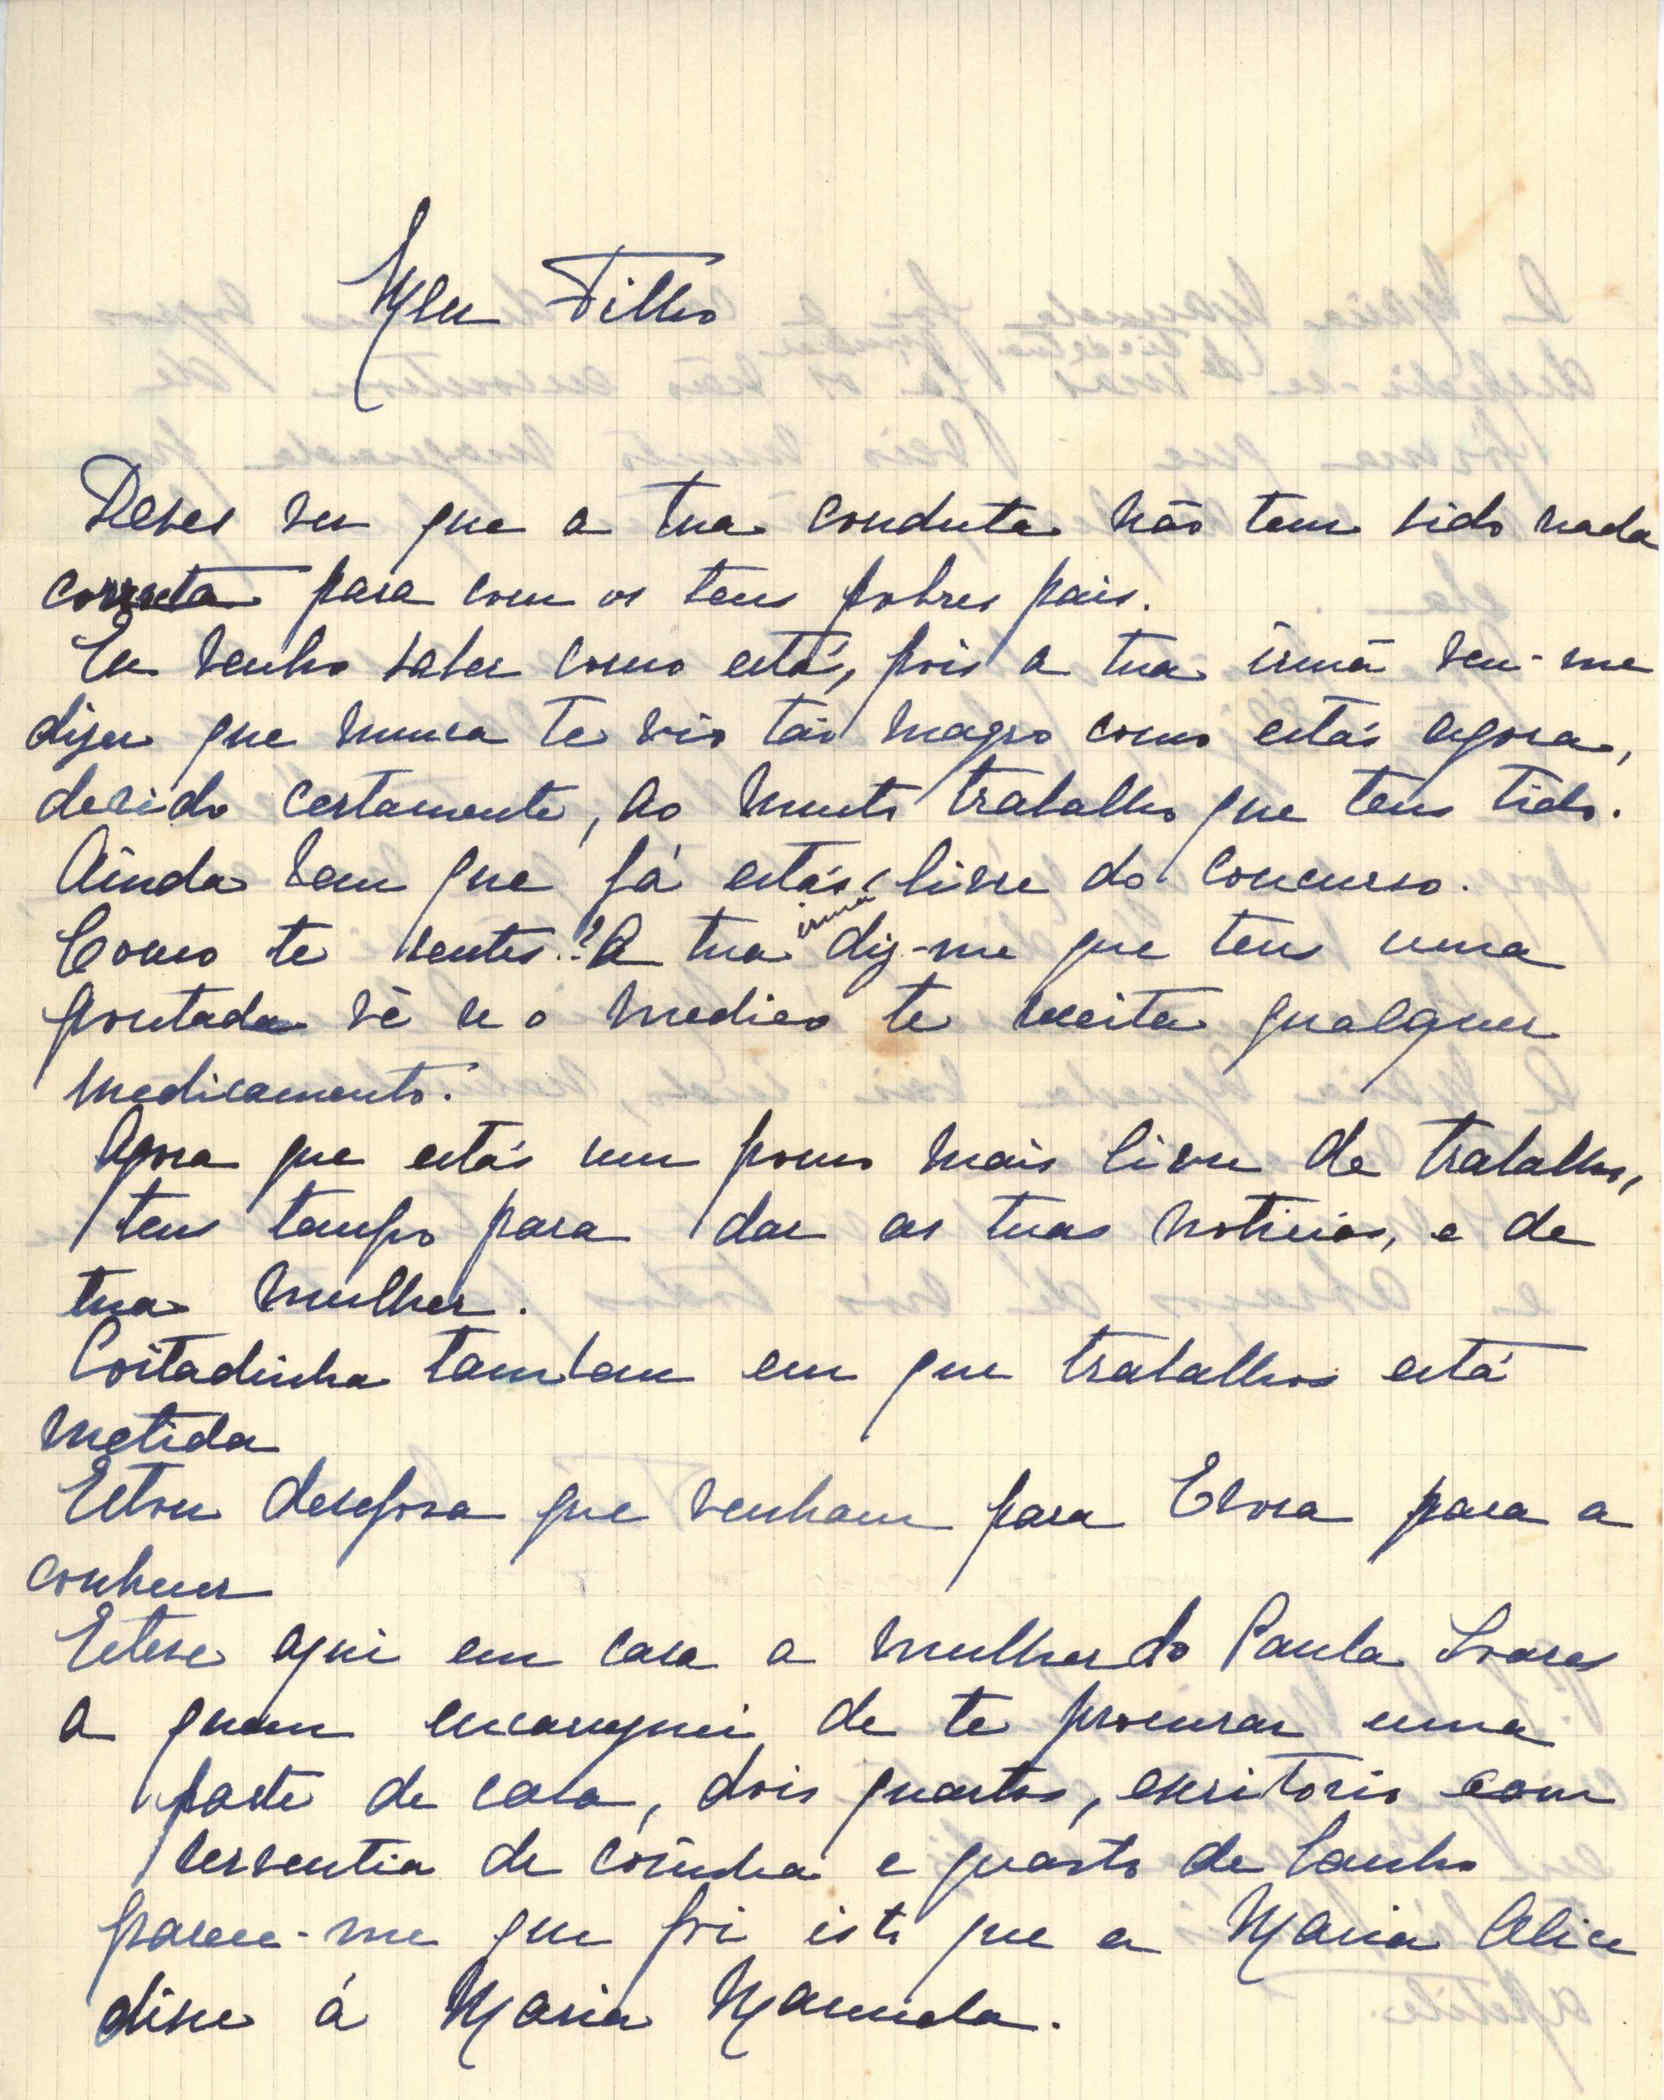 Meu Filho
Deves ver que a tua conduta não tem sido nada
correta para com os teus pobres pais.
Eu venho saber como estás, pois a tua irmã veu-me
dizer que nunca te vio tão magro como estás agora,
devido certamente, ao muito trabalho que tens tido.
Ainda bem que já estás livre do concurso.
Como te sentes? A tua irmã diz-me que tens uma
pontada vê se o medico te receita qualquer
medicamento.
Agora que estás um pouco mais livre de trabalho,
tens tempo para dar as tuas noticias, e de
tua mulher.
Coitadinha tambem em que trabalhos está
metida
Estou desejosa que venham para Evora para a
conhecer
Esteve aqui em casa a mulher do Paula Soares
a quem encarreguei de te procurar uma
parte de casa, dois quartos, escritorio com
serventia de cosinha e quarto de banho
parece-me que foi isto que a Maria Alice
disse á Maria Manuela.